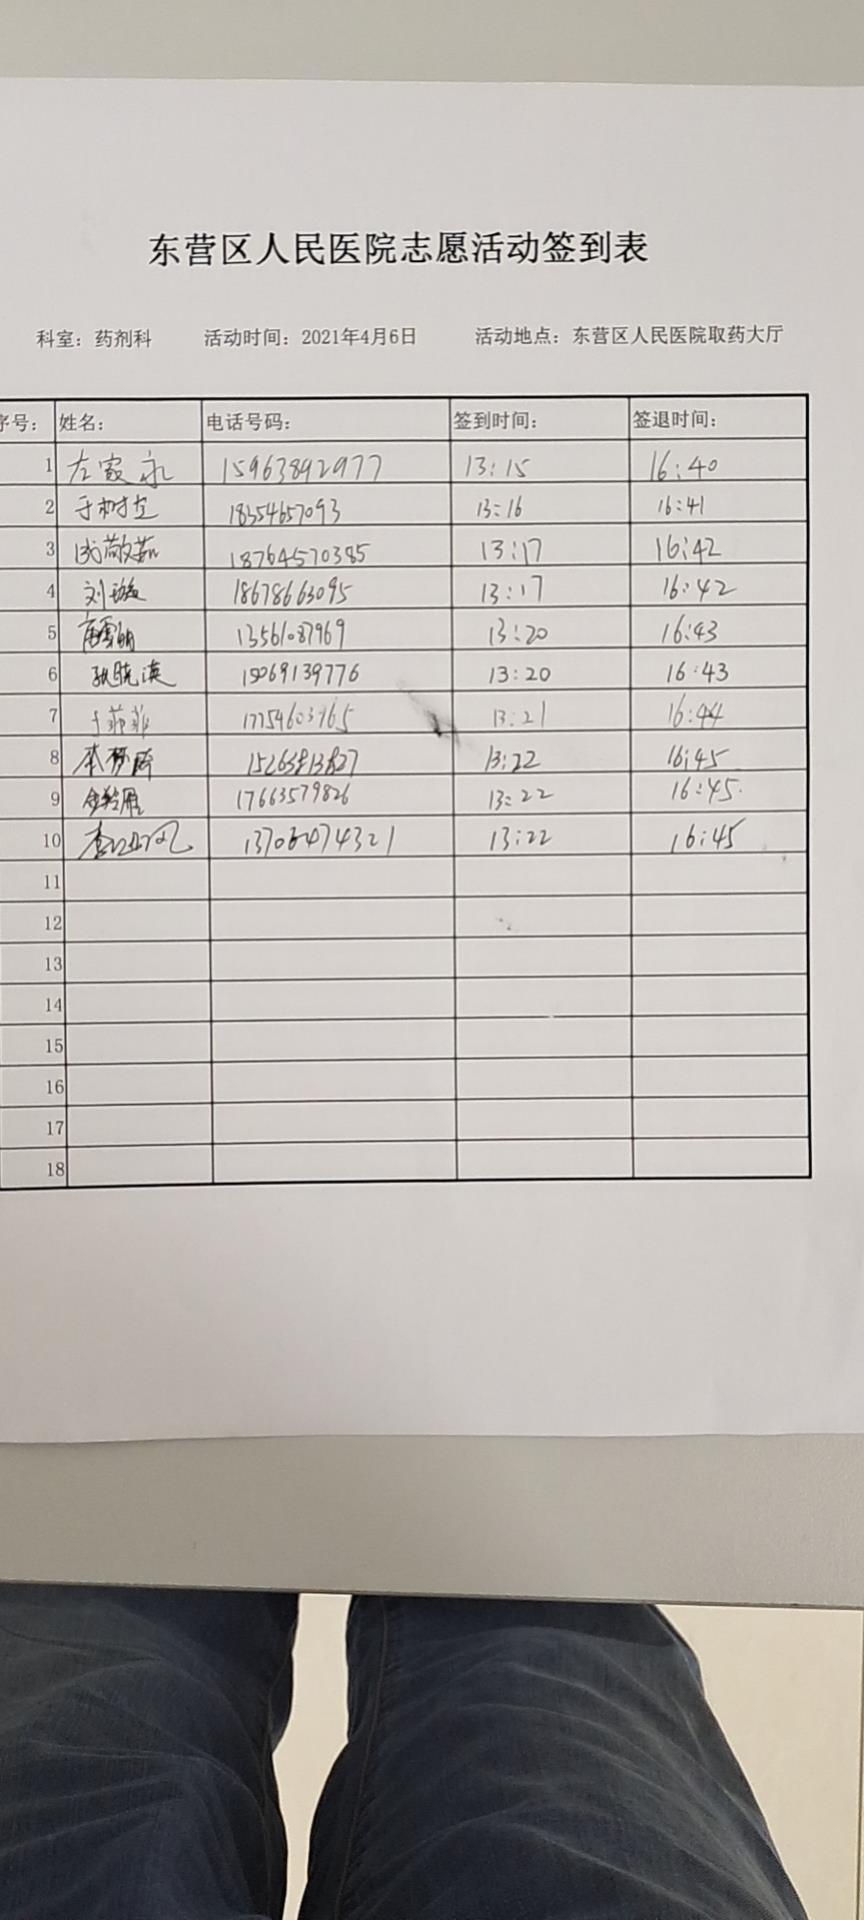 东营区人民医院志愿活动签到表
科室：药剂科 活动时间：2021年4月6日 活动地点：东营区人民医院取药大厅
序号： 姓名： 电话号码： 签到时间： 签退时间：
1 左家永 15963892977 13:15 16:40
2 于树立 18354657093 13:16 16:41
3 敬茹 18764570385 13:17 16:42
4 刘璇 18678663095 13:17 16:42
5 13561087969 13:20 16:43
6 张晓瑛 15069139776 13:20 16:43
7 于菲菲 17754603765 13:21 16:44
8 李梦 13:22 16:45
9 17663579826 13:22 16:45
10 李 13706474321 13:22 16:45
11
12
13
14
15
16
17
18